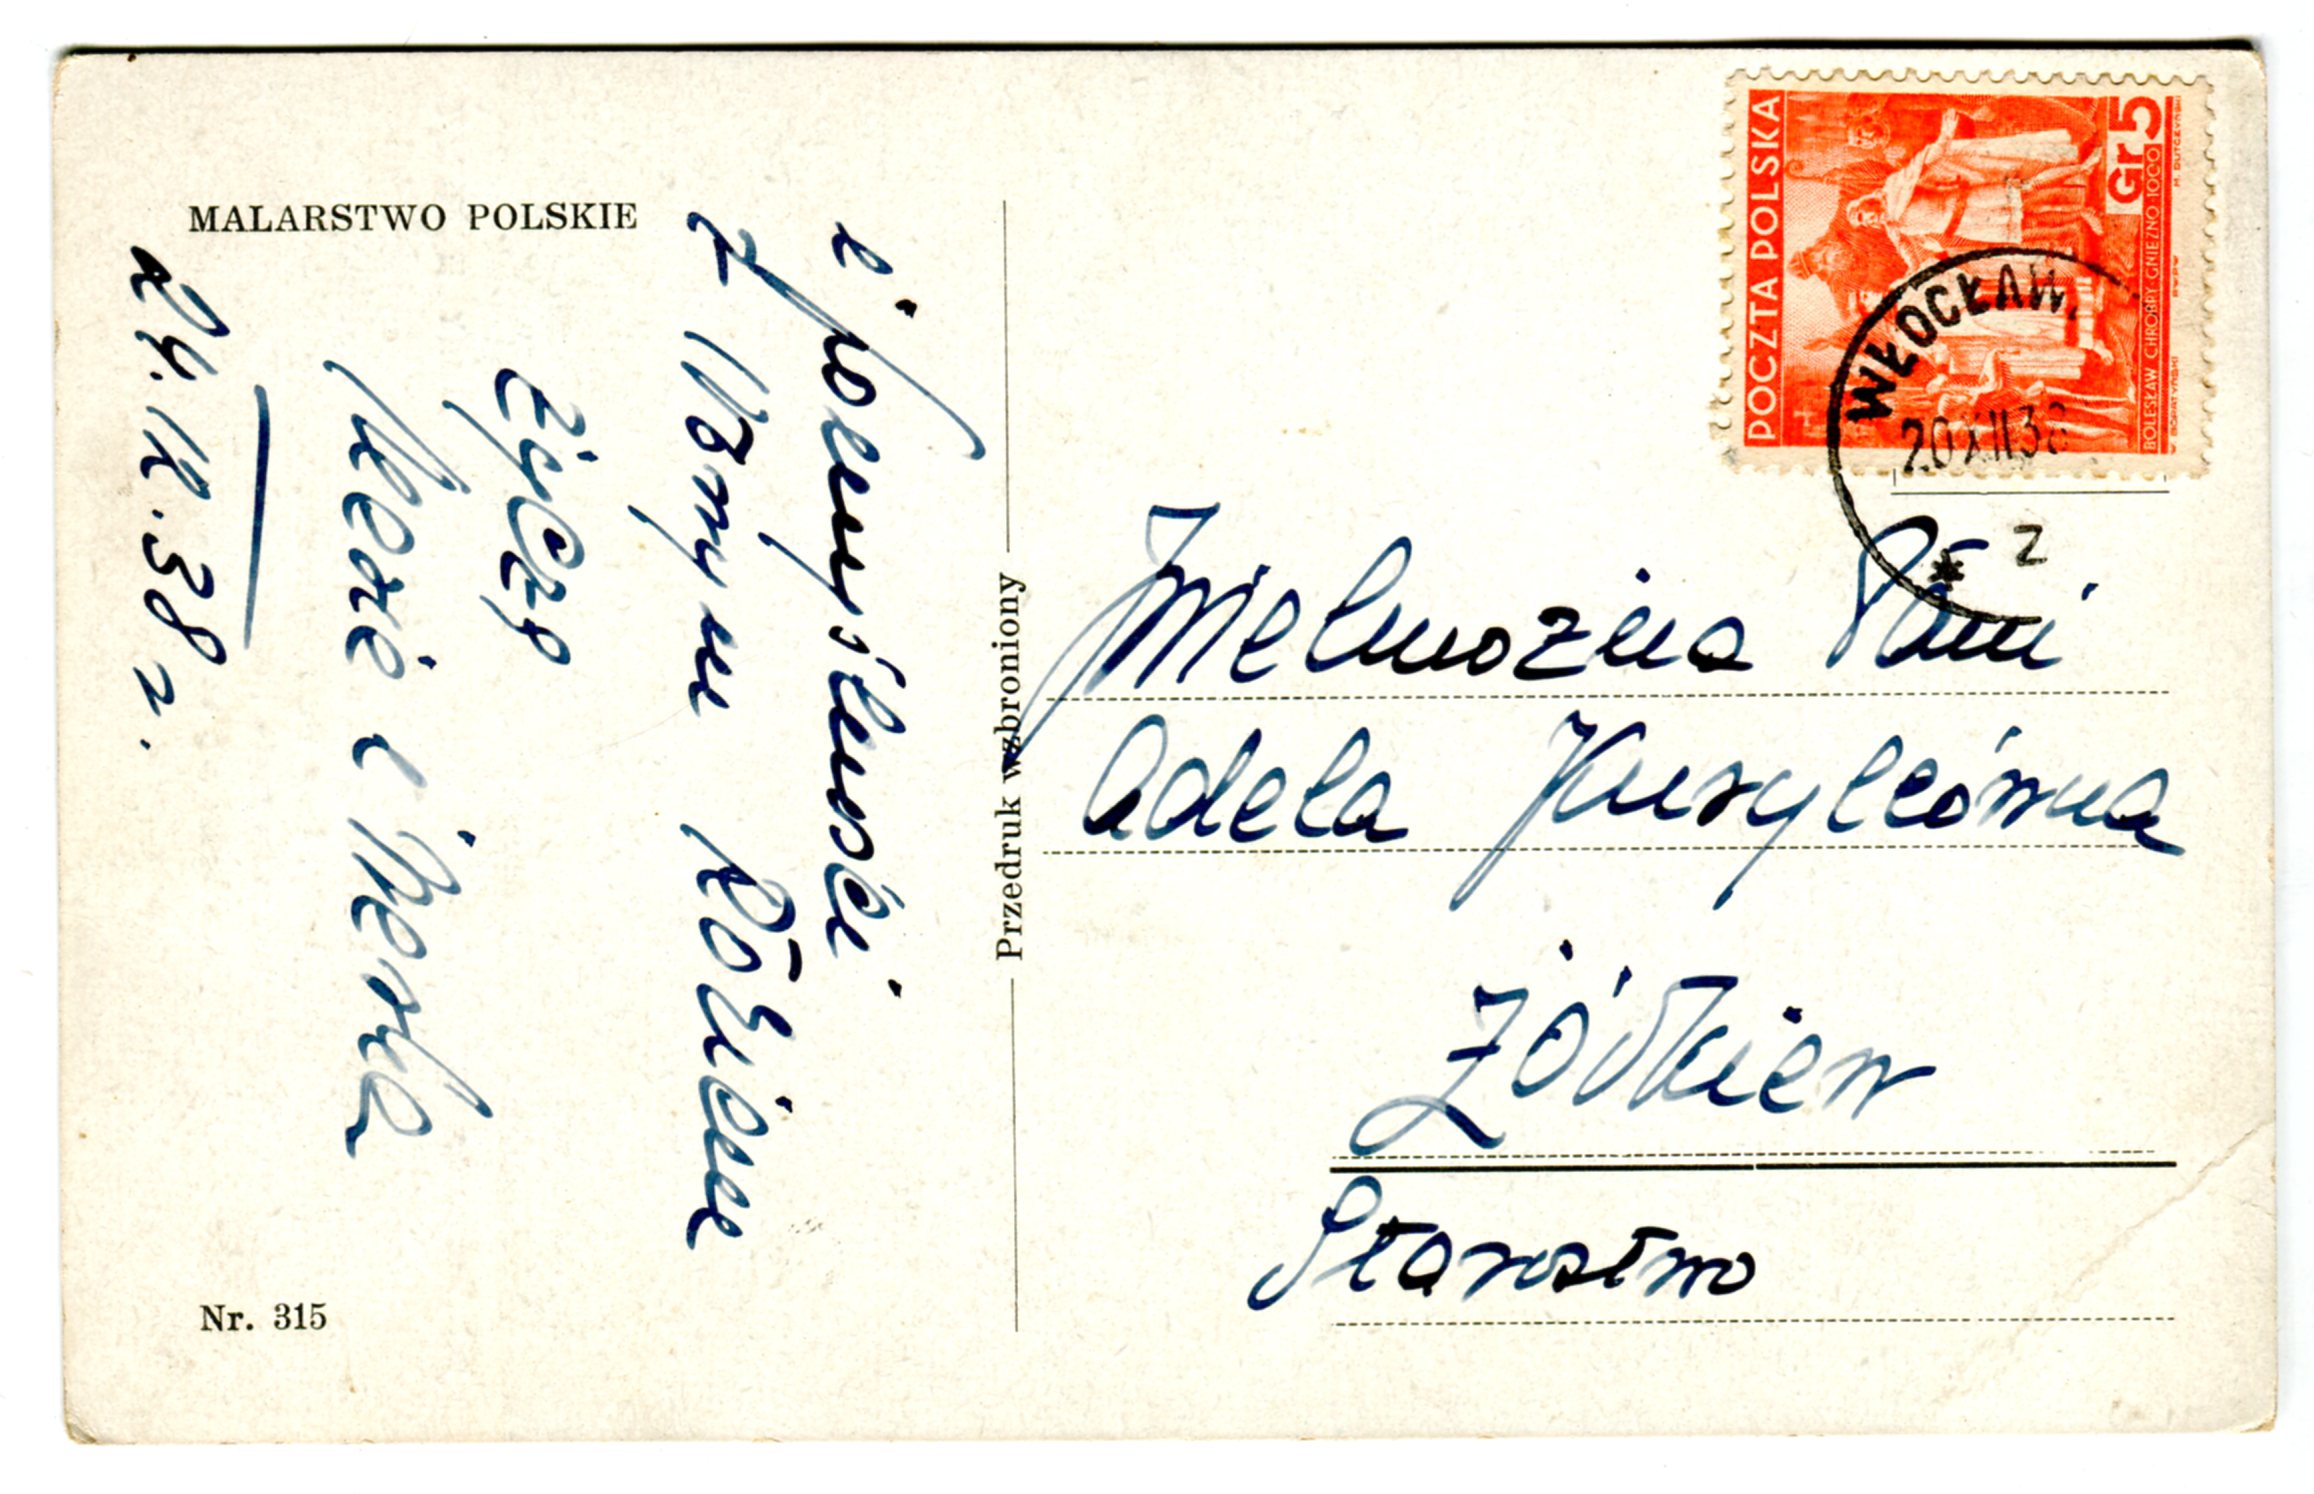 MALARSTWO POLSKIE
i pomyślności
w Nowym Roku
życzą
i
24.12.38 r.
Nr. 315
Przedruk wzbroniony
POCZTA POLSKA
Gr 5
BOLESŁAW CHROBRY GNIEZNO 1000
WŁOCŁAW
20 XII 38
* 2
Wielmożna Pani
Adela
Żółkiew
Starostwo